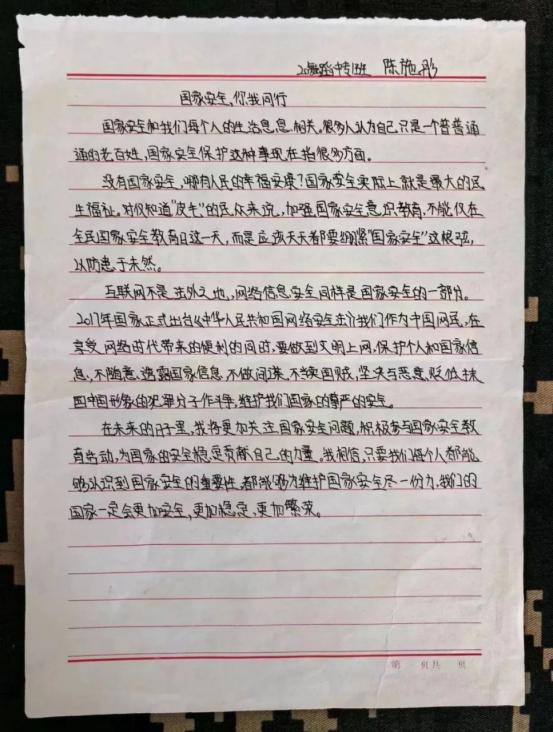 20舞蹈中专1班 陈施彤
国家安全,你我同行
国家安全和我们每个人的生活息息相关。很多人认为自己只是一个普普通
通的老百姓,国家安全保护这种事现在指很多方面。
没有国家安全,哪有人民的幸福安康?国家安全实际上就是最大的民
生福祉。对仅知道"皮毛"的民众来说,加强国家安全意识教育,不能仅在
全民国家安全教育日这一天,而是应该天天都要绷紧"国家安全"这根弦,
以防患于未然。
互联网不是法外之地,网络信息安全同样是国家安全的一部分。
2017年国家正式出台《中华人民共和国网络安全法》我们作为中国网民,在
享受网络时代带来的便利的同时,要做到文明上网,保护个人和国家信
息,不随意透露国家信息,不做间谍,不卖国贼,坚决与恶意贬低抹
四中国形象的犯罪分子作斗争,维护我们国家的尊严的安全。
在未来的日子里,我将更加关注国家安全问题,积极参与国家安全教
育活动,为国家的安全稳定贡献自己的力量。我相信,只要我们每个人都能
够认识到国家安全的重要性,都能够为维护国家安全尽一份力,我们的
国家一定会更加安全,更加稳定,更加繁荣。
第 页共 页